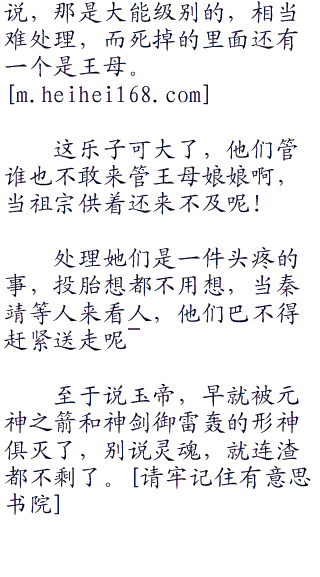 说，那是大能级别的，相当
难处理，而死掉的里面还有
一个是王母。
[m.heihei168.com]
这乐子可大了，他们管
谁也不敢来管王母娘娘啊，
当祖宗供着还来不及呢！
处理她们是一件头疼的
事，投胎想都不用想，当秦
靖等人来看人，他们巴不得
赶紧送走呢
至于说玉帝，早就被元
神之箭和神剑御雷轰的形神
俱灭了，别说灵魂，就连渣
都不剩了。[请牢记住有意思
书院]